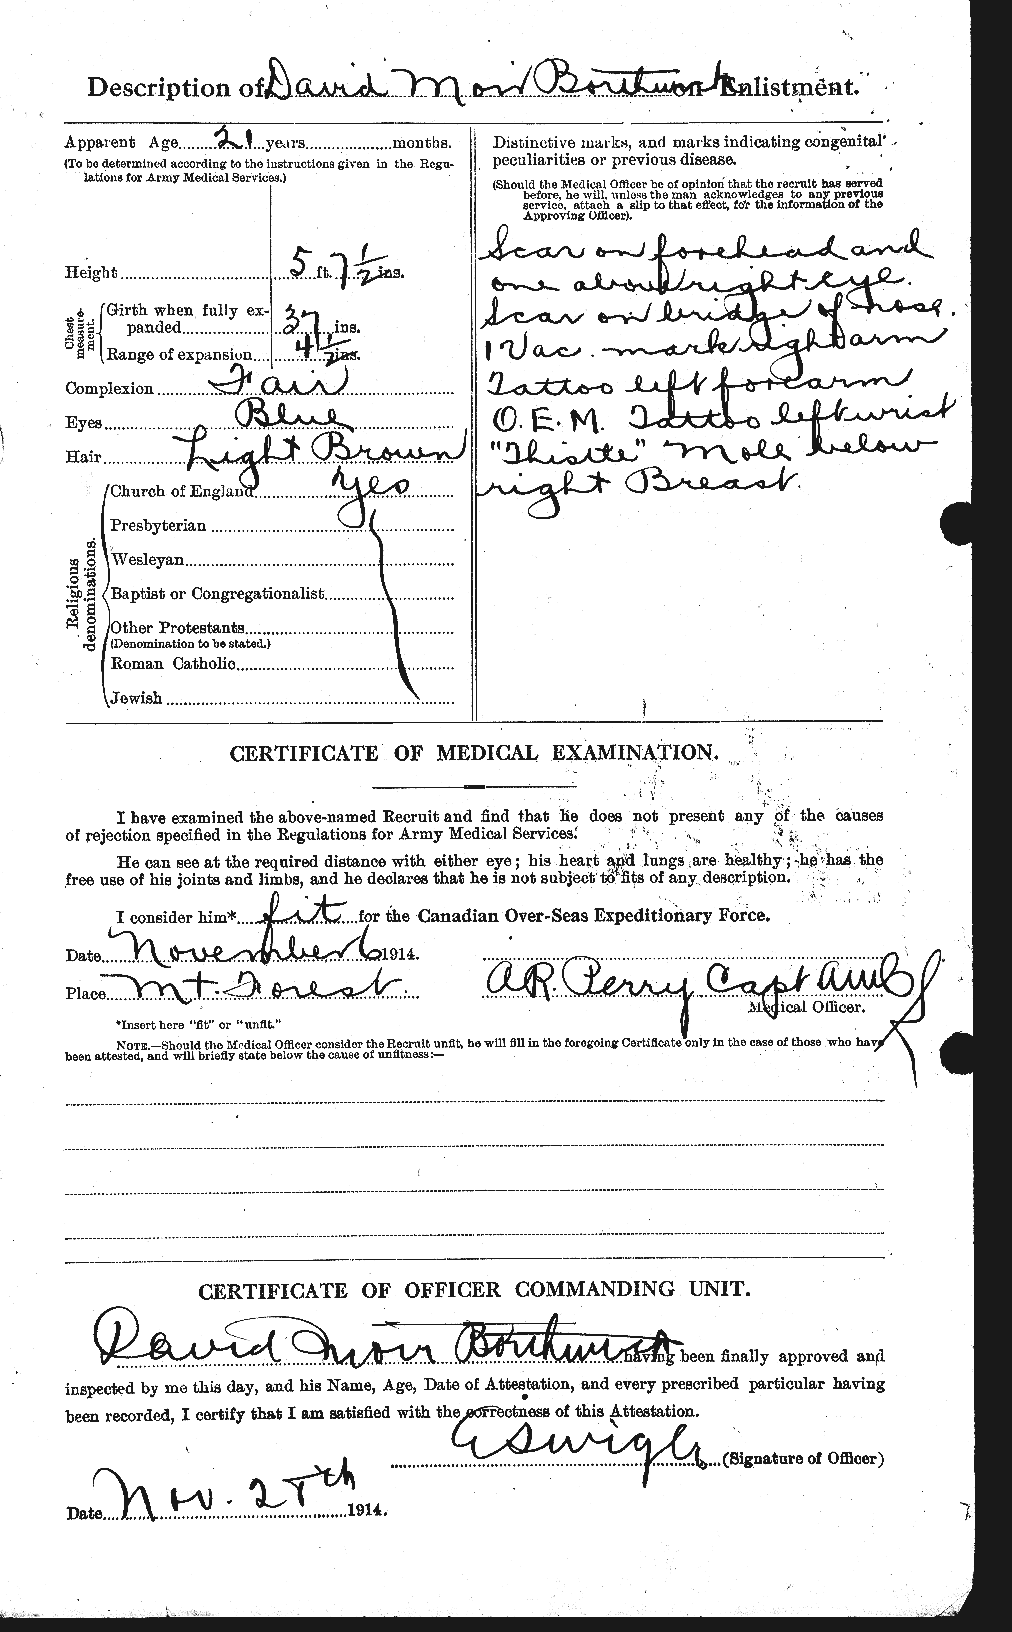 Description of David Moir Borthwick Enlistment.
Apparent Age 21 years months.
(To be determined according to the instructions given in the Regu-
lations for Army Medical Services.)
Height 5 ft. 7 1/2 ins.
Chest measure-ment.
Girth when fully ex-
panded 37 ins.
Range of expansion 4 1/2 ins.
Complexion Fair
Eyes Blue
Hair Light Brown
Religious denominations.
Church of England Yes
Presbyterian
Wesleyan
Baptist or Congregationalist
Other Protestants
(Denomination to be stated.)
Roman Catholic
Jewish
Distinctive marks, and marks indicating congenital
peculiarities or previous disease.
(Should the Medical Officer be of opinion that the recruit has served
before, he will, unless the man acknowledges to any previous
service, attach a slip to that effect, for the information of the
Approving Officer).
Scar on forehead and
one above right eye.
Scar on bridge of nose.
1 Vac. mark right arm
Tattoo left forearm
O.E.M. Tattoo left wrist
"Thistle" Mole below
right Breast.
CERTIFICATE OF MEDICAL EXAMINATION.
I have examined the above-named Recruit and find that he does not present any of the causes
of rejection specified in the Regulations for Army Medical Services.
He can see at the required distance with either eye; his heart and lungs are healthy; he has the
free use of his joints and limbs, and he declares that he is not subject to fits of any description.
I consider him* fit for the Canadian Over-Seas Expeditionary Force.
Date November 6 1914.
Place Mt. Forest.
A.R. Perry Capt AMC
Medical Officer.
*Insert here "fit" or "unfit."
NOTE.—Should the Medical Officer consider the Recruit unfit, he will fill in the foregoing Certificate only in the case of those who have
been attested, and will briefly state below the cause of unfitness:—
CERTIFICATE OF OFFICER COMMANDING UNIT.
David Moir Borthwick having been finally approved and
inspected by me this day, and his Name, Age, Date of Attestation, and every prescribed particular having
been recorded, I certify that I am satisfied with the correctness of this Attestation.
(Signature of Officer)
Date Nov. 28th 1914.